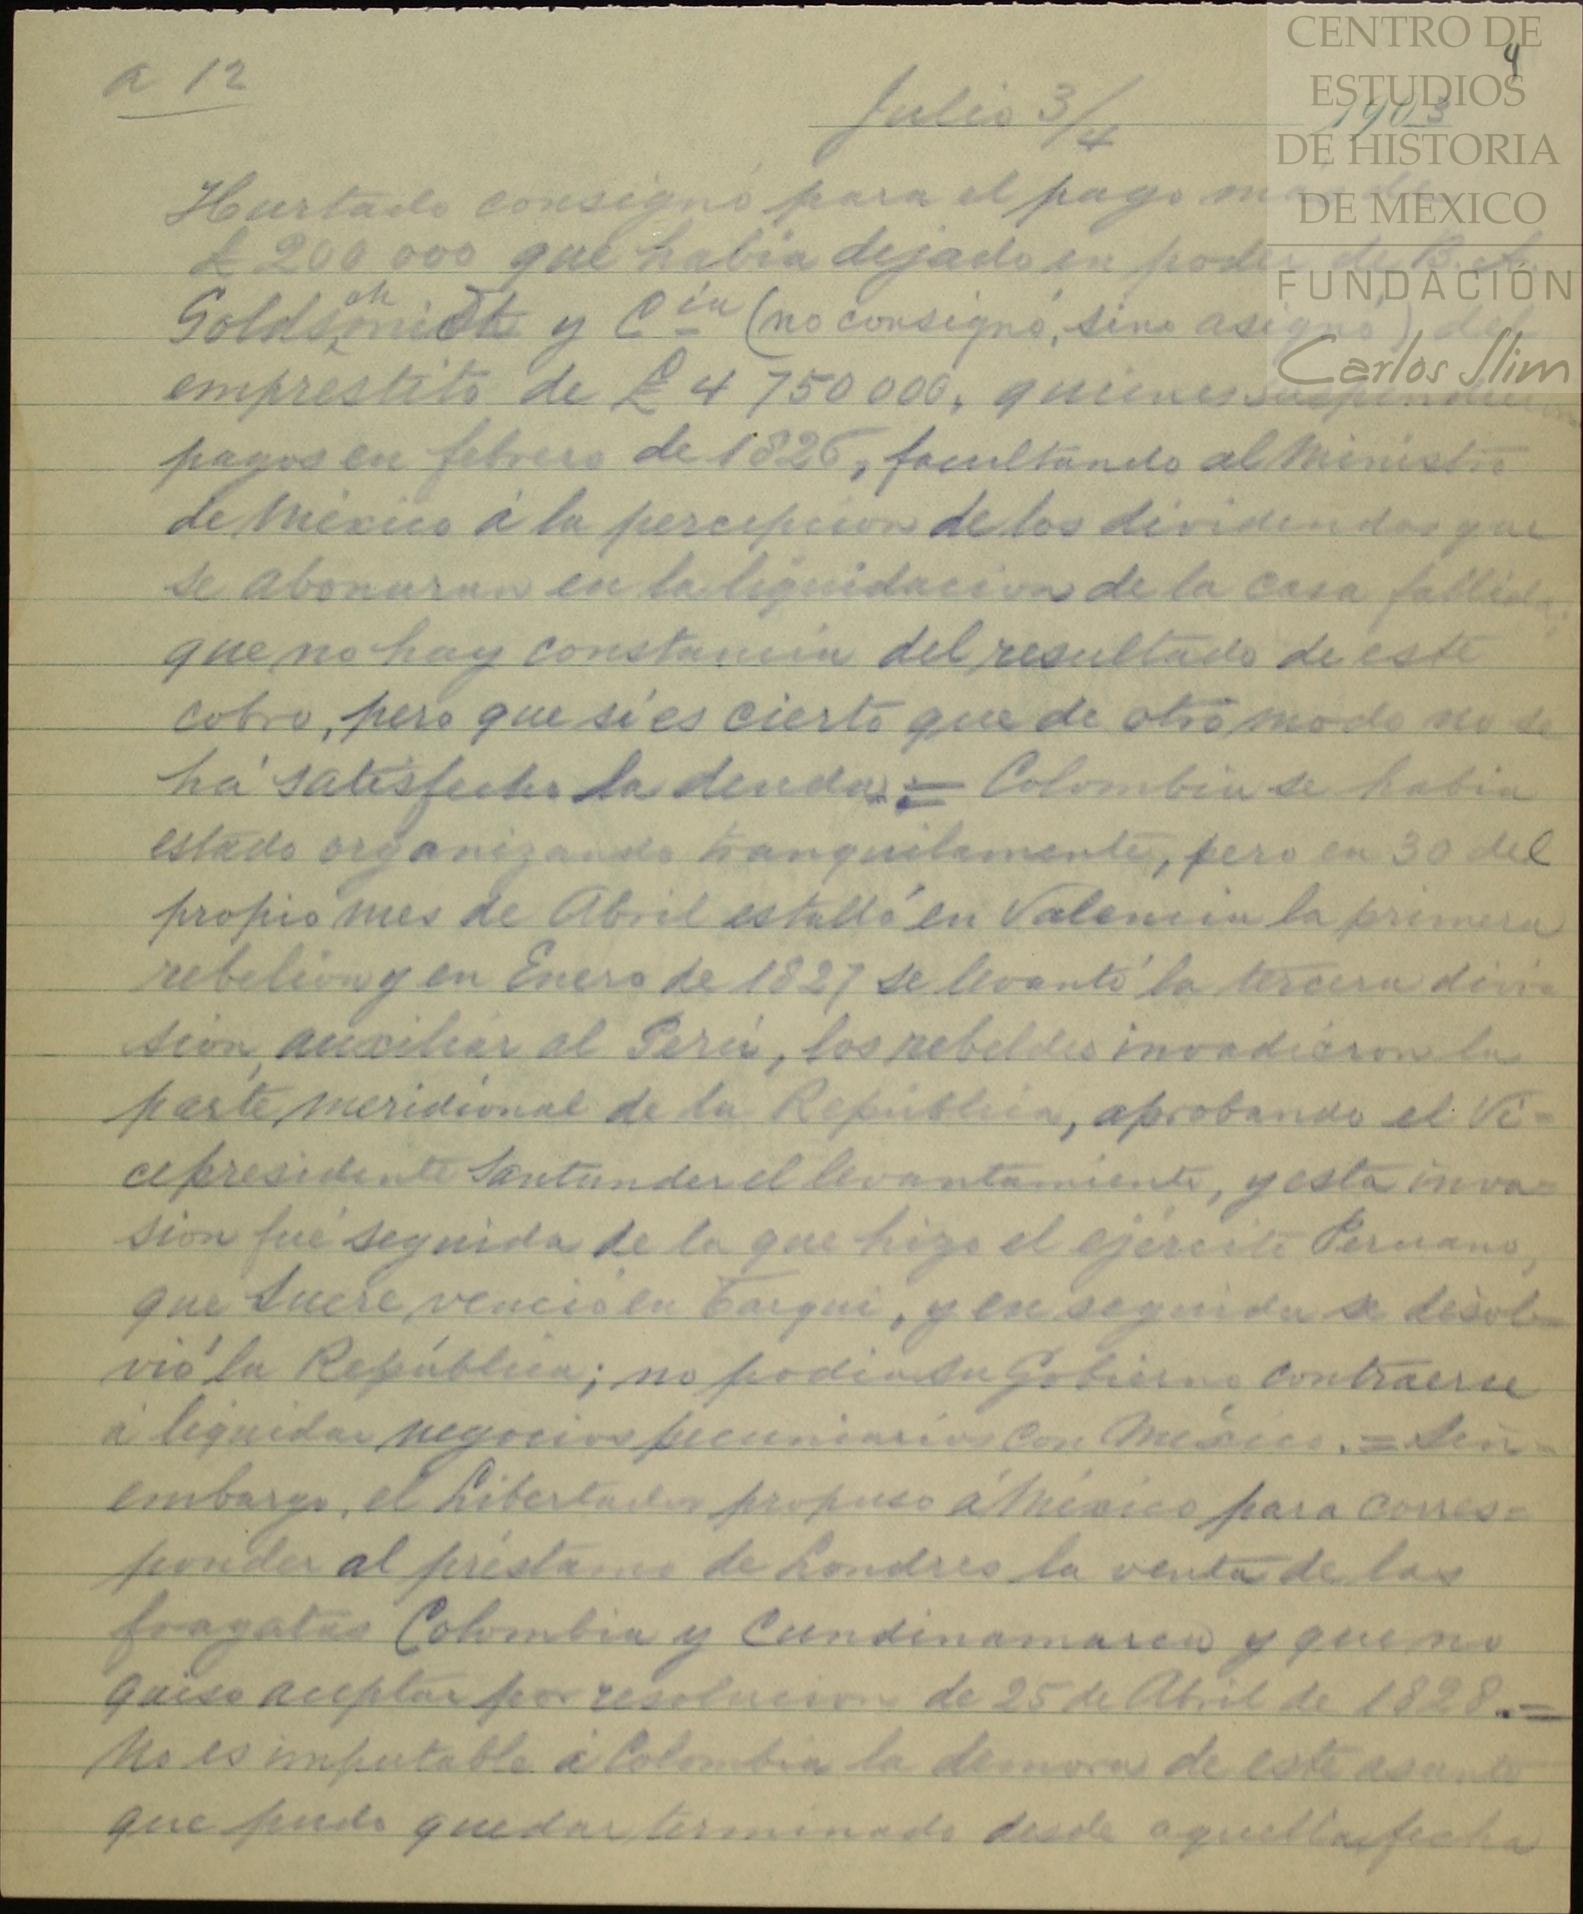 a 12
Julio 3/4
4
1903
CENTRO DE
ESTUDIOS
DE HISTORIA
DE MÉXICO
FUNDACIÓN
Carlos Slim
Hurtado consignó para el pago más de
£ 200 000 que habia dejado en poder de B. A.
Goldschmidt y Cía (no consignó, sino asignó) del
emprestito de £ 4 750 000, quienes suspendieron
pagos en febrero de 1826, facultando al Ministro
de México á la percepcion de los dividendos que
se abonaran en la liquidacion de la casa fallida;
que no hay constancia del resultado de este
cobro, pero que sí es cierto que de otro modo no se
há satisfecho la deuda. = Colombia se habia
estado organizando tranquilamente, pero en 30 del
propio mes de Abril estalló en Valencia la primera
rebelion y en Enero de 1827 se levantó la tercera divi
sion, auxiliar al Perú, los rebeldes invadieron la
parte meridional de la República, aprobando el Vi=
cepresidente Santander el levantamiento, y esta inva=
sion fué seguida de la que hizo el ejército Peruano,
que Sucre venció en Tarqui, y en seguida se disol=
vió la República; no podia su Gobierno contraerse
á liquidar negocios pecuniarios con México. = Sin=
embargo, el Libertador propuso á México para corres=
ponder al préstamo de Londres la venta de las
fragatas Colombia y Cundinamarca y que no
quiso aceptar por resolucion de 25 de Abril de 1828. =
No es imputable á Colombia la demora de este asunto
que pudo quedar terminado desde aquella fecha